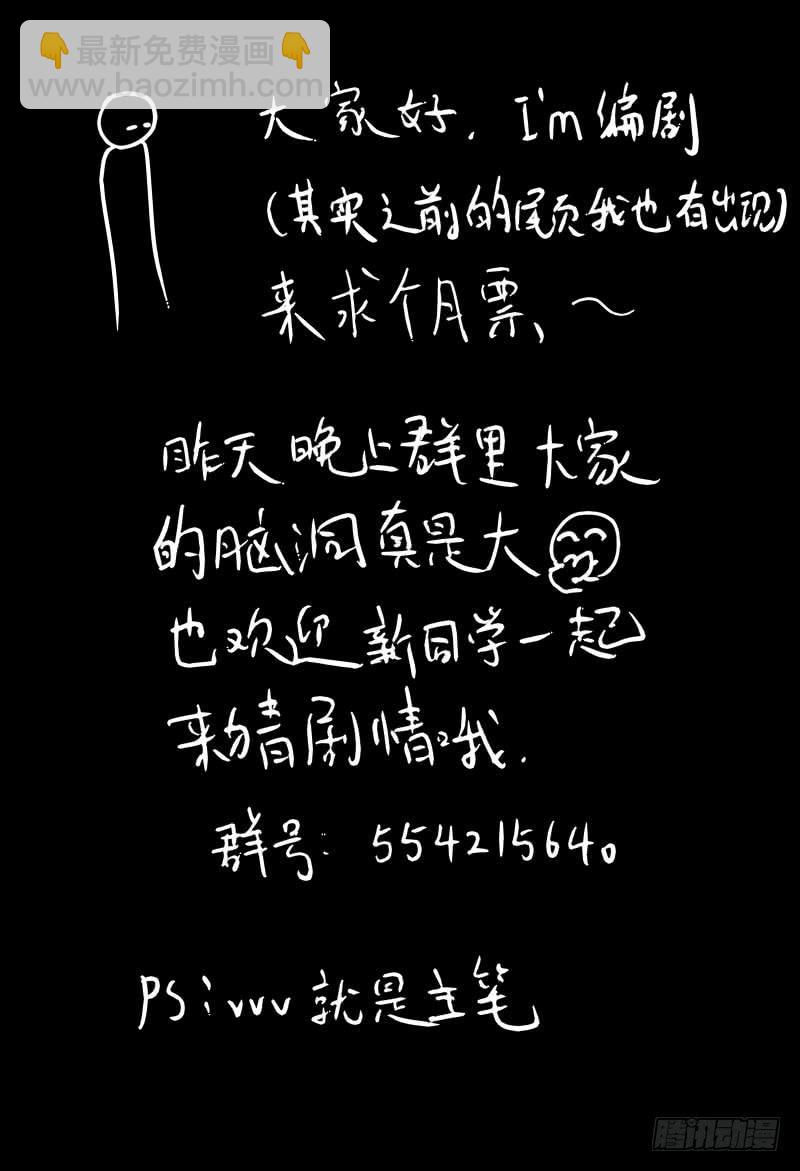 👇最新免费漫画👇
www.baozimh.com
大家好, I'm编剧
(其实之前的尾页我也有出现)
来求个月票、~
昨天晚上群里大家
的脑洞真是大
也欢迎新同学一起
来猜剧情哦.
群号: 554215640
PS:vvv就是主笔
腾讯动漫